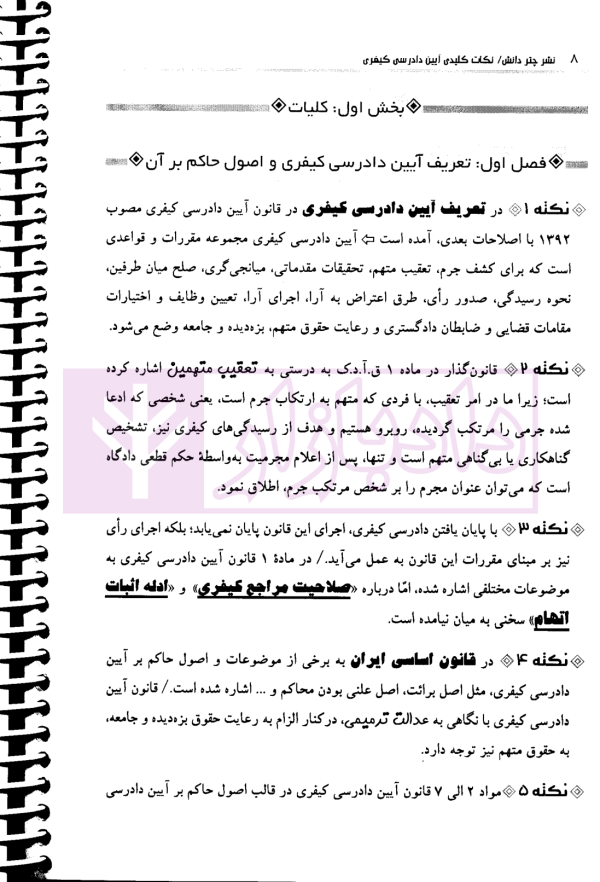 ۸ نشر چتر دانش/ نکات کلیدی آیین دادرسی کیفری
بخش اول: کلیات
فصل اول: تعریف آیین دادرسی کیفری و اصول حاکم بر آن
نکته ۱ در تعریف آیین دادرسی کیفری در قانون آیین دادرسی کیفری مصوب
۱۳۹۲ با اصلاحات بعدی، آمده است ⇦ آیین دادرسی کیفری مجموعه مقررات و قواعدی
است که برای کشف جرم، تعقیب متهم، تحقیقات مقدماتی، میانجی‌گری، صلح میان طرفین،
نحوه رسیدگی، صدور رأی، طرق اعتراض به آرا، اجرای آرا، تعیین وظایف و اختیارات
مقامات قضایی و ضابطان دادگستری و رعایت حقوق متهم، بزه‌دیده و جامعه وضع می‌شود.
نکته ۲ قانون‌گذار در ماده ۱ ق.آ.د.ک به درستی به تعقیب متهمین اشاره کرده
است؛ زیرا ما در امر تعقیب، با فردی که متهم به ارتکاب جرم است، یعنی شخصی که ادعا
شده جرمی را مرتکب گردیده، روبرو هستیم و هدف از رسیدگی‌های کیفری نیز، تشخیص
گناهکاری یا بی‌گناهی متهم است و تنها، پس از اعلام مجرمیت به‌واسطهٔ حکم قطعی دادگاه
است که می‌توان عنوان مجرم را بر شخص مرتکب جرم، اطلاق نمود.
دادبازار
نکته ۳ با پایان یافتن دادرسی کیفری، اجرای این قانون پایان نمی‌یابد؛ بلکه اجرای رأی
نیز بر مبنای مقررات این قانون به عمل می‌آید./ در مادهٔ ۱ قانون آیین دادرسی کیفری به
موضوعات مختلفی اشاره شده، امّا درباره «صلاحیت مراجع کیفری» و «ادله اثبات
اتهام» سخنی به میان نیامده است.
نکته ۴ در قانون اساسی ایران به برخی از موضوعات و اصول حاکم بر آیین
دادرسی کیفری، مثل اصل برائت، اصل علنی بودن محاکم و ... اشاره شده است./ قانون آیین
دادرسی کیفری با نگاهی به عدالت ترمیمی، درکنار الزام به رعایت حقوق بزه‌دیده و جامعه،
به حقوق متهم نیز توجه دارد.
نکته ۵ مواد ۲ الی ۷ قانون آیین دادرسی کیفری در قالب اصول حاکم بر آیین دادرسی